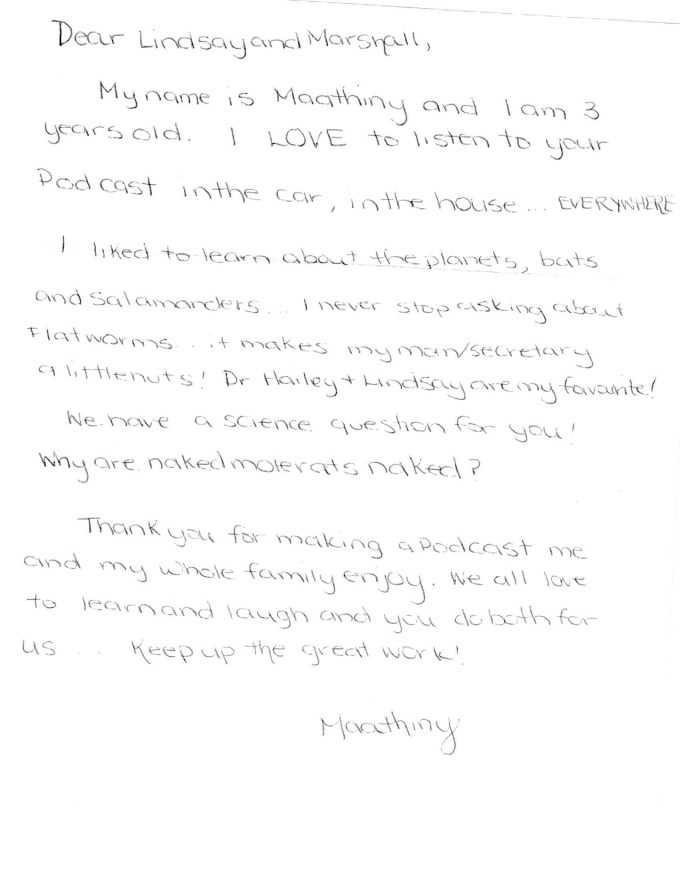 Dear Lindsay and Marshall,
My name is Maathiny and I am 3
years old. I LOVE to listen to your
Podcast in the car, in the house... EVERYWHERE
I liked to learn about the planets, bats
and Salamanders... I never stop asking about
Flatworms... it makes my mom/secretary
a little nuts! Dr Hailey + Lindsay are my favourite!
We have a science question for you!
Why are naked mole rats naked?
Thank you for making a Podcast me
and my whole family enjoy. We all love
to learn and laugh and you do both for
us ... Keep up the great work!
Maathiny